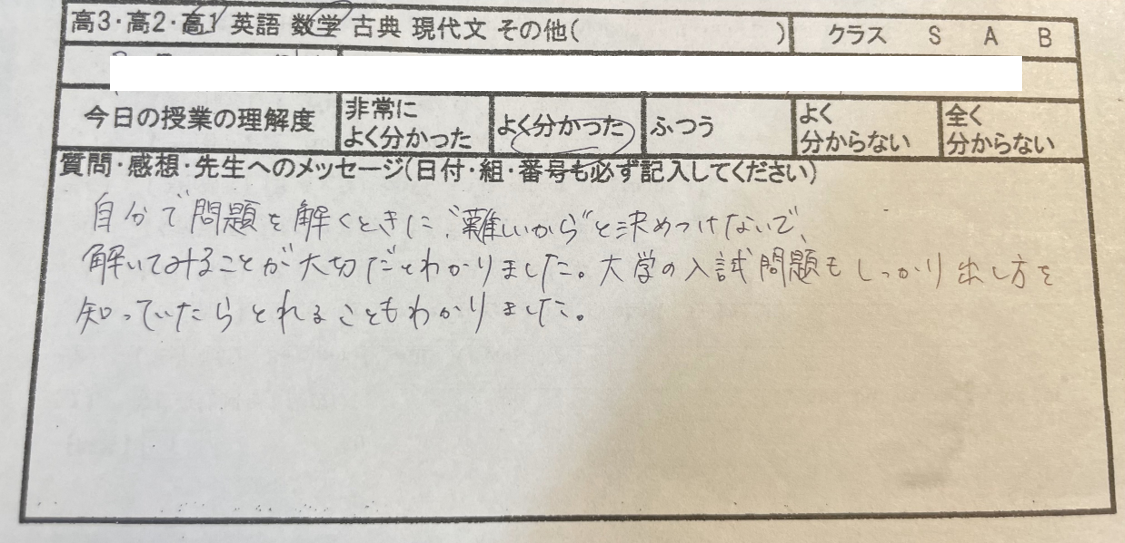 高3・高2・高1 英語 数学 古典 現代文 その他( ) クラス S A B
今日の授業の理解度 非常によく分かった よく分かった ふつう よく分からない 全く分からない
質問・感想・先生へのメッセージ(日付・組・番号も必ず記入してください)
自分で問題を解くときに、"難しいから"と決めつけないで、
解いてみることが大切だとわかりました。大学の入試問題もしっかり出し方を
知っていたらとれることもわかりました。